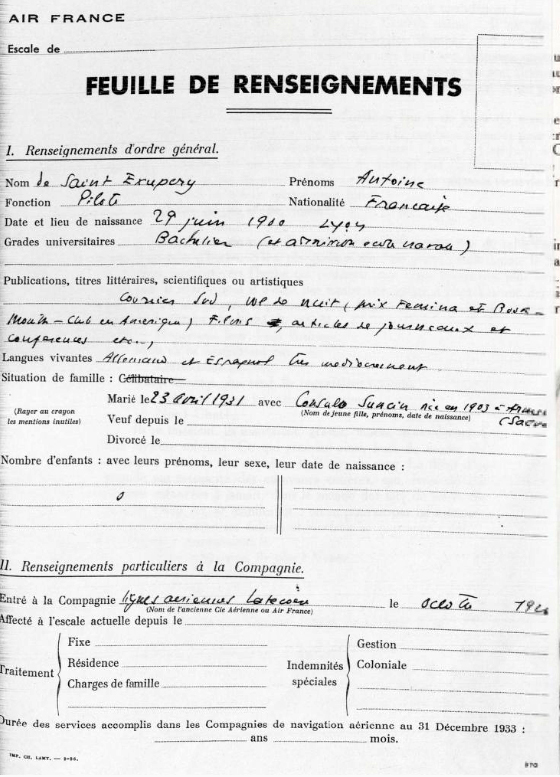 AIR FRANCE
Escale de
FEUILLE DE RENSEIGNEMENTS
I. Renseignements d'ordre général.
Nom de Saint Exupery Prénoms Antoine
Fonction Pilote Nationalité Francaise
Date et lieu de naissance 29 juin 1900 Lyon
Grades universitaires Bachelier (et admission ecole navale)
Publications, titres littéraires, scientifiques ou artistiques
Courrier Sud, Vol de nuit (prix Femina et Book-
Month-Club en Amerique) Films, articles de journeaux et
conferences etc..,
Langues vivantes Allemand et Espagnol très mediocrement
Situation de famille : Célibataire
Marié le 23 avril 1931 avec Consuelo Suncin née en 1903 à
(Rayer au crayon (Nom de jeune fille, prénoms, date de naissance)
les mentions inutiles) Veuf depuis le
Divorcé le
Nombre d'enfants : avec leurs prénoms, leur sexe, leur date de naissance :
0
II. Renseignements particuliers à la Compagnie.
Entré à la Compagnie lignes aeriennes Latecoere le octobre
(Nom de l'ancienne Cie Aérienne ou Air France)
Affecté à l'escale actuelle depuis le
Fixe Gestion
Résidence Coloniale
Traitement Indemnités
Charges de famille spéciales
Durée des services accomplis dans les Compagnies de navigation aérienne au 31 Décembre 1933 :
ans mois.
IMP. CH. LAMY.